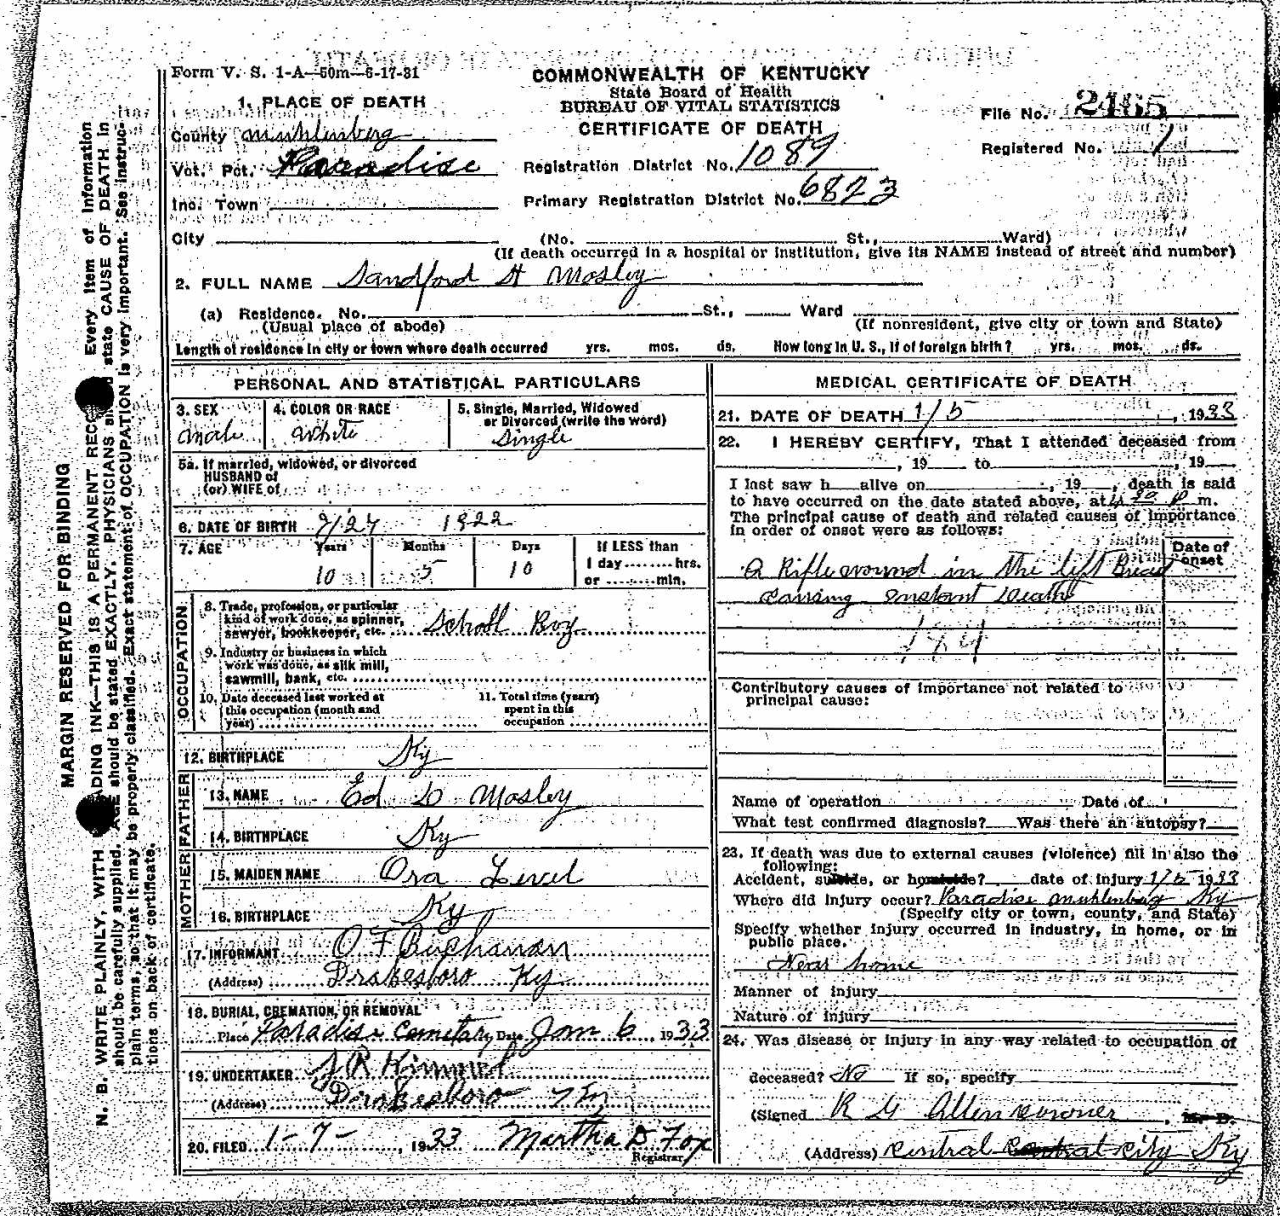 Form V. S. 1-A—50m—6-17-31
COMMONWEALTH OF KENTUCKY
State Board of Health
BUREAU OF VITAL STATISTICS
CERTIFICATE OF DEATH
File No. 2465
Registered No. 1
1. PLACE OF DEATH
County Muhlenberg
Vot. Pct. Paradise
Registration District No. 1089
Inc. Town
Primary Registration District No. 6823
City (No. St., Ward)
(If death occurred in a hospital or institution, give its NAME instead of street and number)
2. FULL NAME Sandford H Mosley
(a) Residence. No. St., Ward
(Usual place of abode) (If nonresident, give city or town and State)
Length of residence in city or town where death occurred yrs. mos. ds. How long in U. S., if of foreign birth? yrs. mos. ds.
PERSONAL AND STATISTICAL PARTICULARS
3. SEX male
4. COLOR OR RACE white
5. Single, Married, Widowed or Divorced (write the word) Single
5a. If married, widowed, or divorced
HUSBAND of
(or) WIFE of
6. DATE OF BIRTH 7/27 1922
7. AGE Years Months Days If LESS than
10 5 10 1 day hrs.
or min.
OCCUPATION
8. Trade, profession, or particular
kind of work done, as spinner,
sawyer, bookkeeper, etc. School Boy
9. Industry or business in which
work was done, as silk mill,
sawmill, bank, etc.
10. Date deceased last worked at
this occupation (month and
year)
11. Total time (years)
spent in this
occupation
12. BIRTHPLACE Ky
FATHER
13. NAME Ed D Mosley
14. BIRTHPLACE Ky
MOTHER
15. MAIDEN NAME Ora
16. BIRTHPLACE Ky
17. INFORMANT O F Buchanan
(Address) Drakesboro Ky
18. BURIAL, CREMATION, OR REMOVAL
Place Paradise Cemetary Date Jan 6 1933
19. UNDERTAKER Kimmel
(Address) Drakesboro Ky
20. FILED 1-7-, 1933 Martha D Fox
Registrar
MEDICAL CERTIFICATE OF DEATH
21. DATE OF DEATH 1/5, 1933
22. I HEREBY CERTIFY, That I attended deceased from
, 19 to , 19
I last saw h alive on , 19 , death is said
to have occurred on the date stated above, at 4 30 P m.
The principal cause of death and related causes of importance
in order of onset were as follows:
Date of onset
A Rifle wound in the left Breast
causing instant Death
184
Contributory causes of importance not related to
principal cause:
Name of operation Date of
What test confirmed diagnosis? Was there an autopsy?
23. If death was due to external causes (violence) fill in also the
following:
Accident, suicide, or homicide? date of injury 1/5 1933
Where did injury occur? Paradise Muhlenberg Ky
(Specify city or town, county, and State)
Specify whether injury occurred in industry, in home, or in
public place.
Near home
Manner of injury
Nature of injury
24. Was disease or injury in any way related to occupation of
deceased? No If so, specify
(Signed R G Allen coroner M. D.
(Address) Central Central City Ky
MARGIN RESERVED FOR BINDING
N. B. WRITE PLAINLY, WITH ADING INK—THIS IS A PERMANENT RECO Every item of information
should be carefully supplied. AGE should be stated EXACTLY. PHYSICIANS state CAUSE OF DEATH in
plain terms, so that it may be properly classified. Exact statement of OCCUPATION is very important. See instruc-
tions on back of certificate.